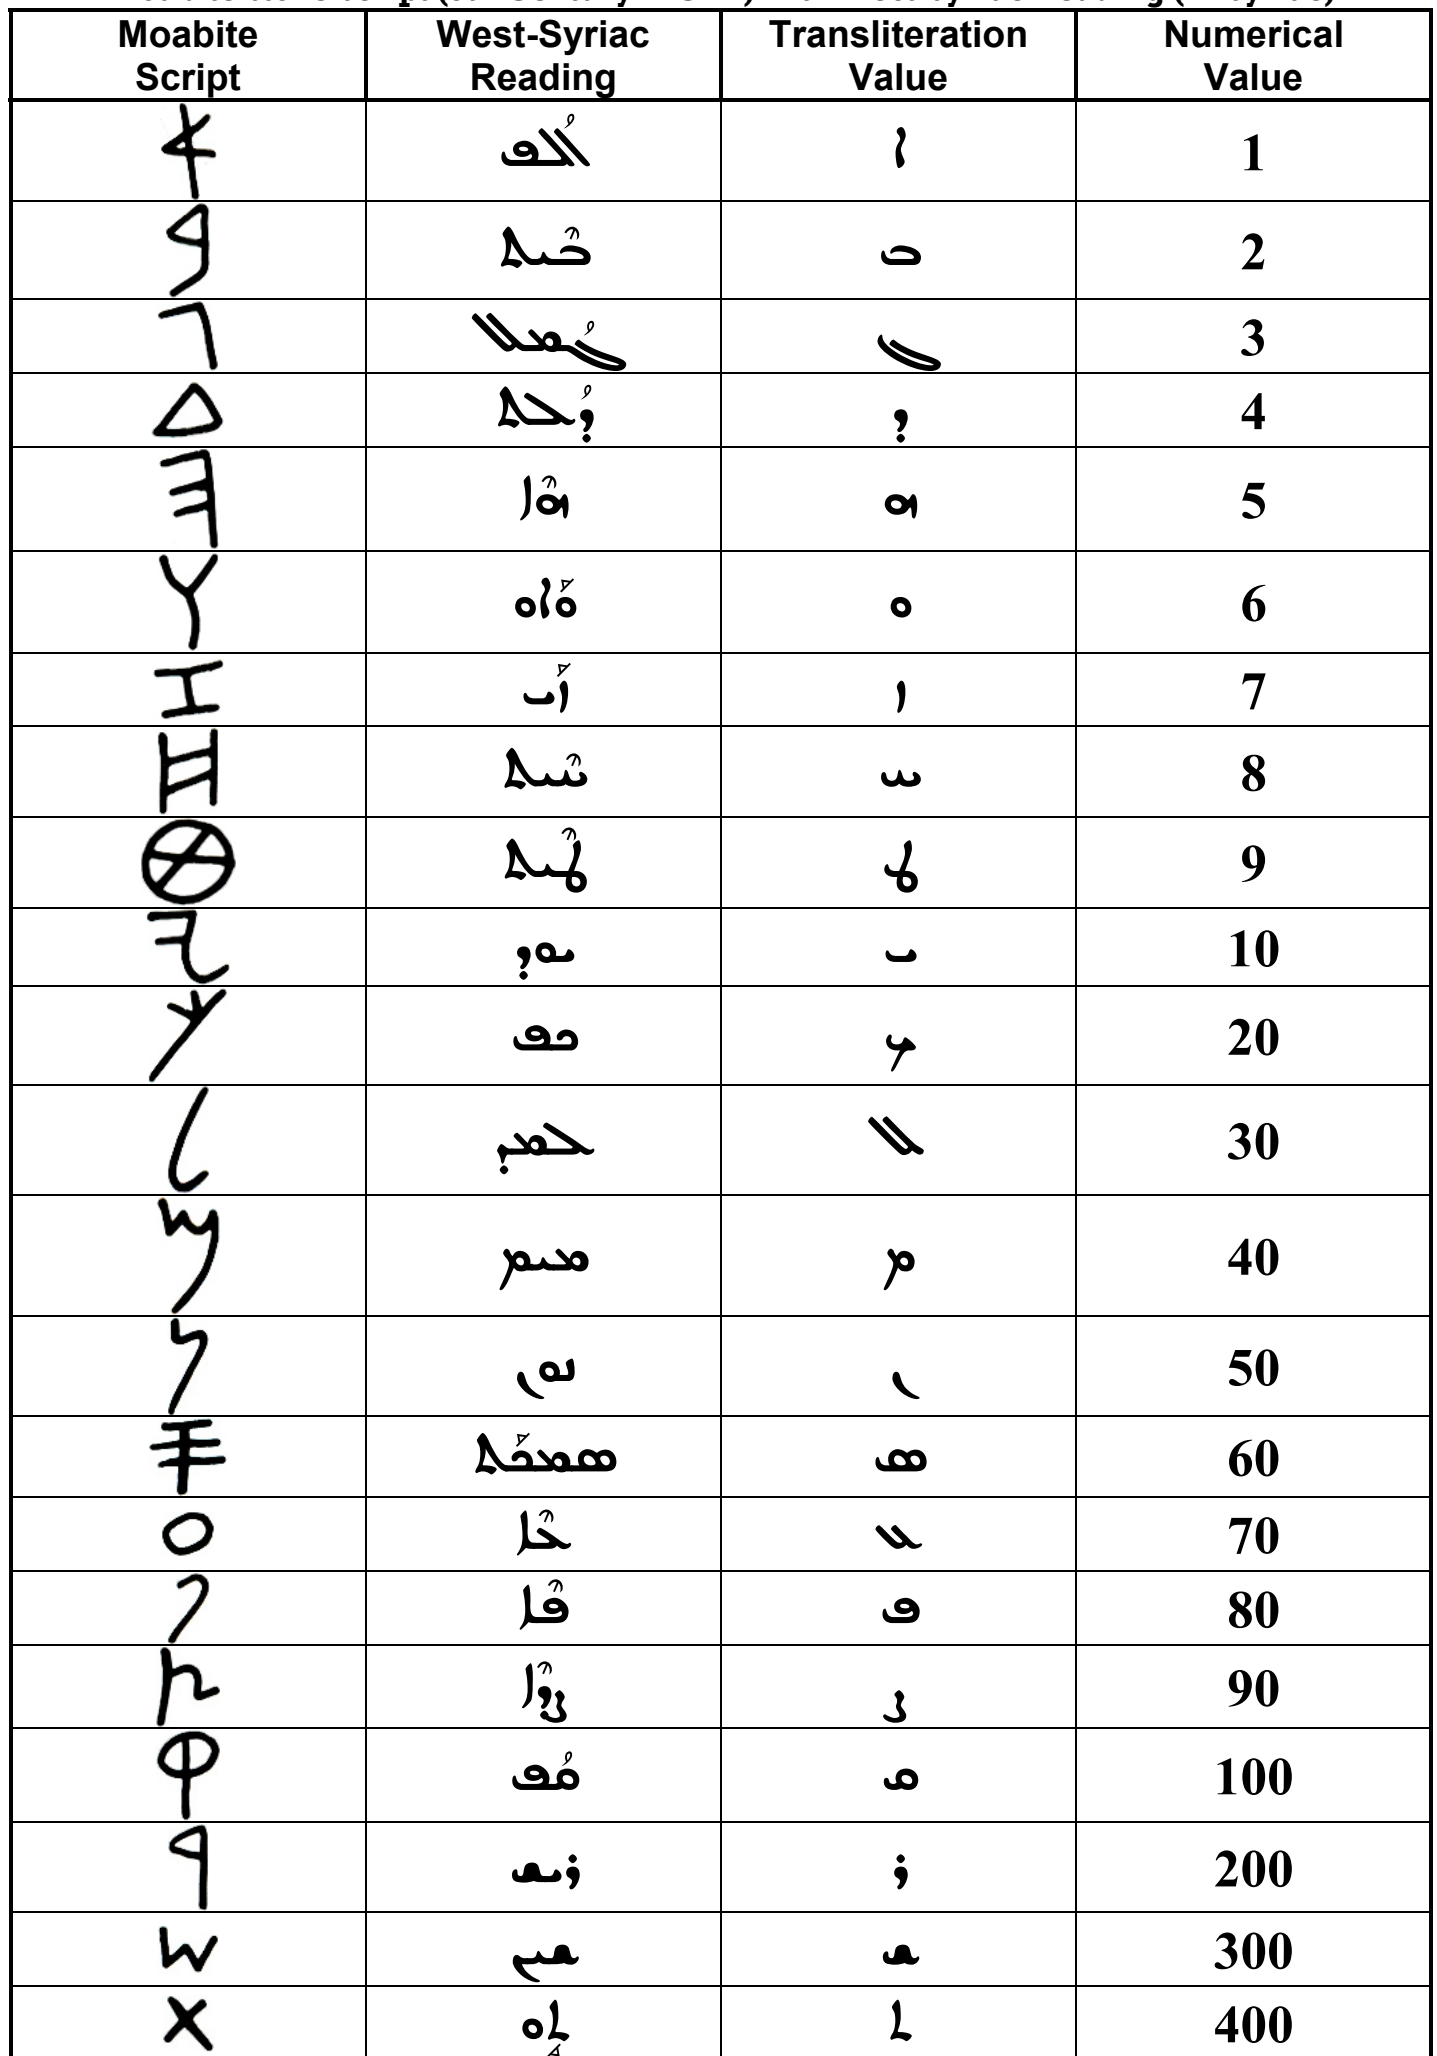 Moabite Script West-Syriac Reading Transliteration Value Numerical Value
𐤀 ܐܳܠܰܦ ܐ 1
𐤁 ܒܶܝܬ ܒ 2
𐤂 ܓܳܡܠ ܓ 3
𐤃 ܕܳܠܬ ܕ 4
𐤄 ܗܶܐ ܗ 5
𐤅 ܘܰܐܘ ܘ 6
𐤆 ܙܰܝ ܙ 7
𐤇 ܚܶܝܬ ܚ 8
𐤈 ܛܶܝܬ ܛ 9
𐤉 ܝܘܕ ܝ 10
𐤊 ܟܦ ܟ 20
𐤋 ܠܡܕ ܠ 30
𐤌 ܡܝܡ ܡ 40
𐤍 ܢܘܢ ܢ 50
𐤎 ܣܡܟܰܬ ܣ 60
𐤏 ܥܶܐ ܥ 70
𐤐 ܦܶܐ ܦ 80
𐤑 ܨܕܶܐ ܨ 90
𐤒 ܩܳܦ ܩ 100
𐤓 ܪܝܫ ܪ 200
𐤔 ܫܝܢ ܫ 300
𐤕 ܬܘ ܬ 400